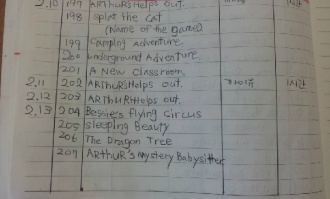 2.10 197 ARTHURSHelps out.
198 splat the cat
(Name of the game)
199 Camping adventure.
200 underground Adventure.
201 A New Classroom
2.11 202 ARTHURSHelps out. 1시간
2.12 203 ARTHURSHelps out.
2.13 204 Bessie's flying circus
205 sleeping Beauty
206 The Dragon Tree
207 ARTHUR'S Mystery Babysitter